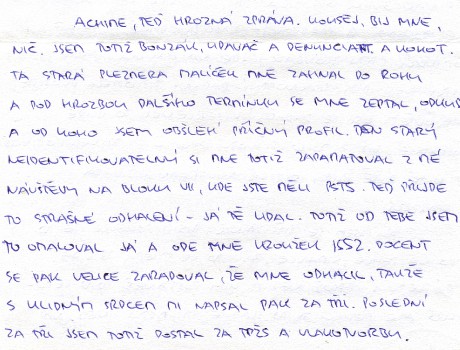 ACHIME, TEĎ HROZNÁ ZPRÁVA. KOUSEJ, BIJ MNE,
NIČ. JSEM TOTIŽ BONZÁK, UDAVAČ A DENUNCIANT. A KOKOT.
TA STARÁ MALÍČEK MNE ZAHNAL DO ROHU
A POD HROZBOU DALŠÍHO TERMÍNU SE MNE ZEPTAL, ODKUD
A OD KOHO JSEM OBŠLEHL PŘÍČNÝ PROFIL. TEN STARÝ
NEIDENTIFIKOVATELNÝ SI MNE TOTIŽ ZAPAMATOVAL Z MÉ
NÁVŠTĚVY NA BLOKU VII, KDE JSTE MĚLI PSTS. TEĎ PŘIJDE
TO STRAŠNÉ ODHALENÍ - JÁ TĚ UDAL. TOTIŽ OD TEBE JSEM
TO OPALOVAL JÁ A ODE MNE KROUŽEK 1552. DOCENT
SE PAK VELICE ZARADOVAL, ŽE MNE ODHALIL, TAKŽE
S KLIDNÝM SRDCEM MI NAPSAL PAK ZA TŘI. POSLEDNÍ
ZA TŘI JSEM TOTIŽ DOSTAL ZA TDŽS A VLAKOTVORBU.